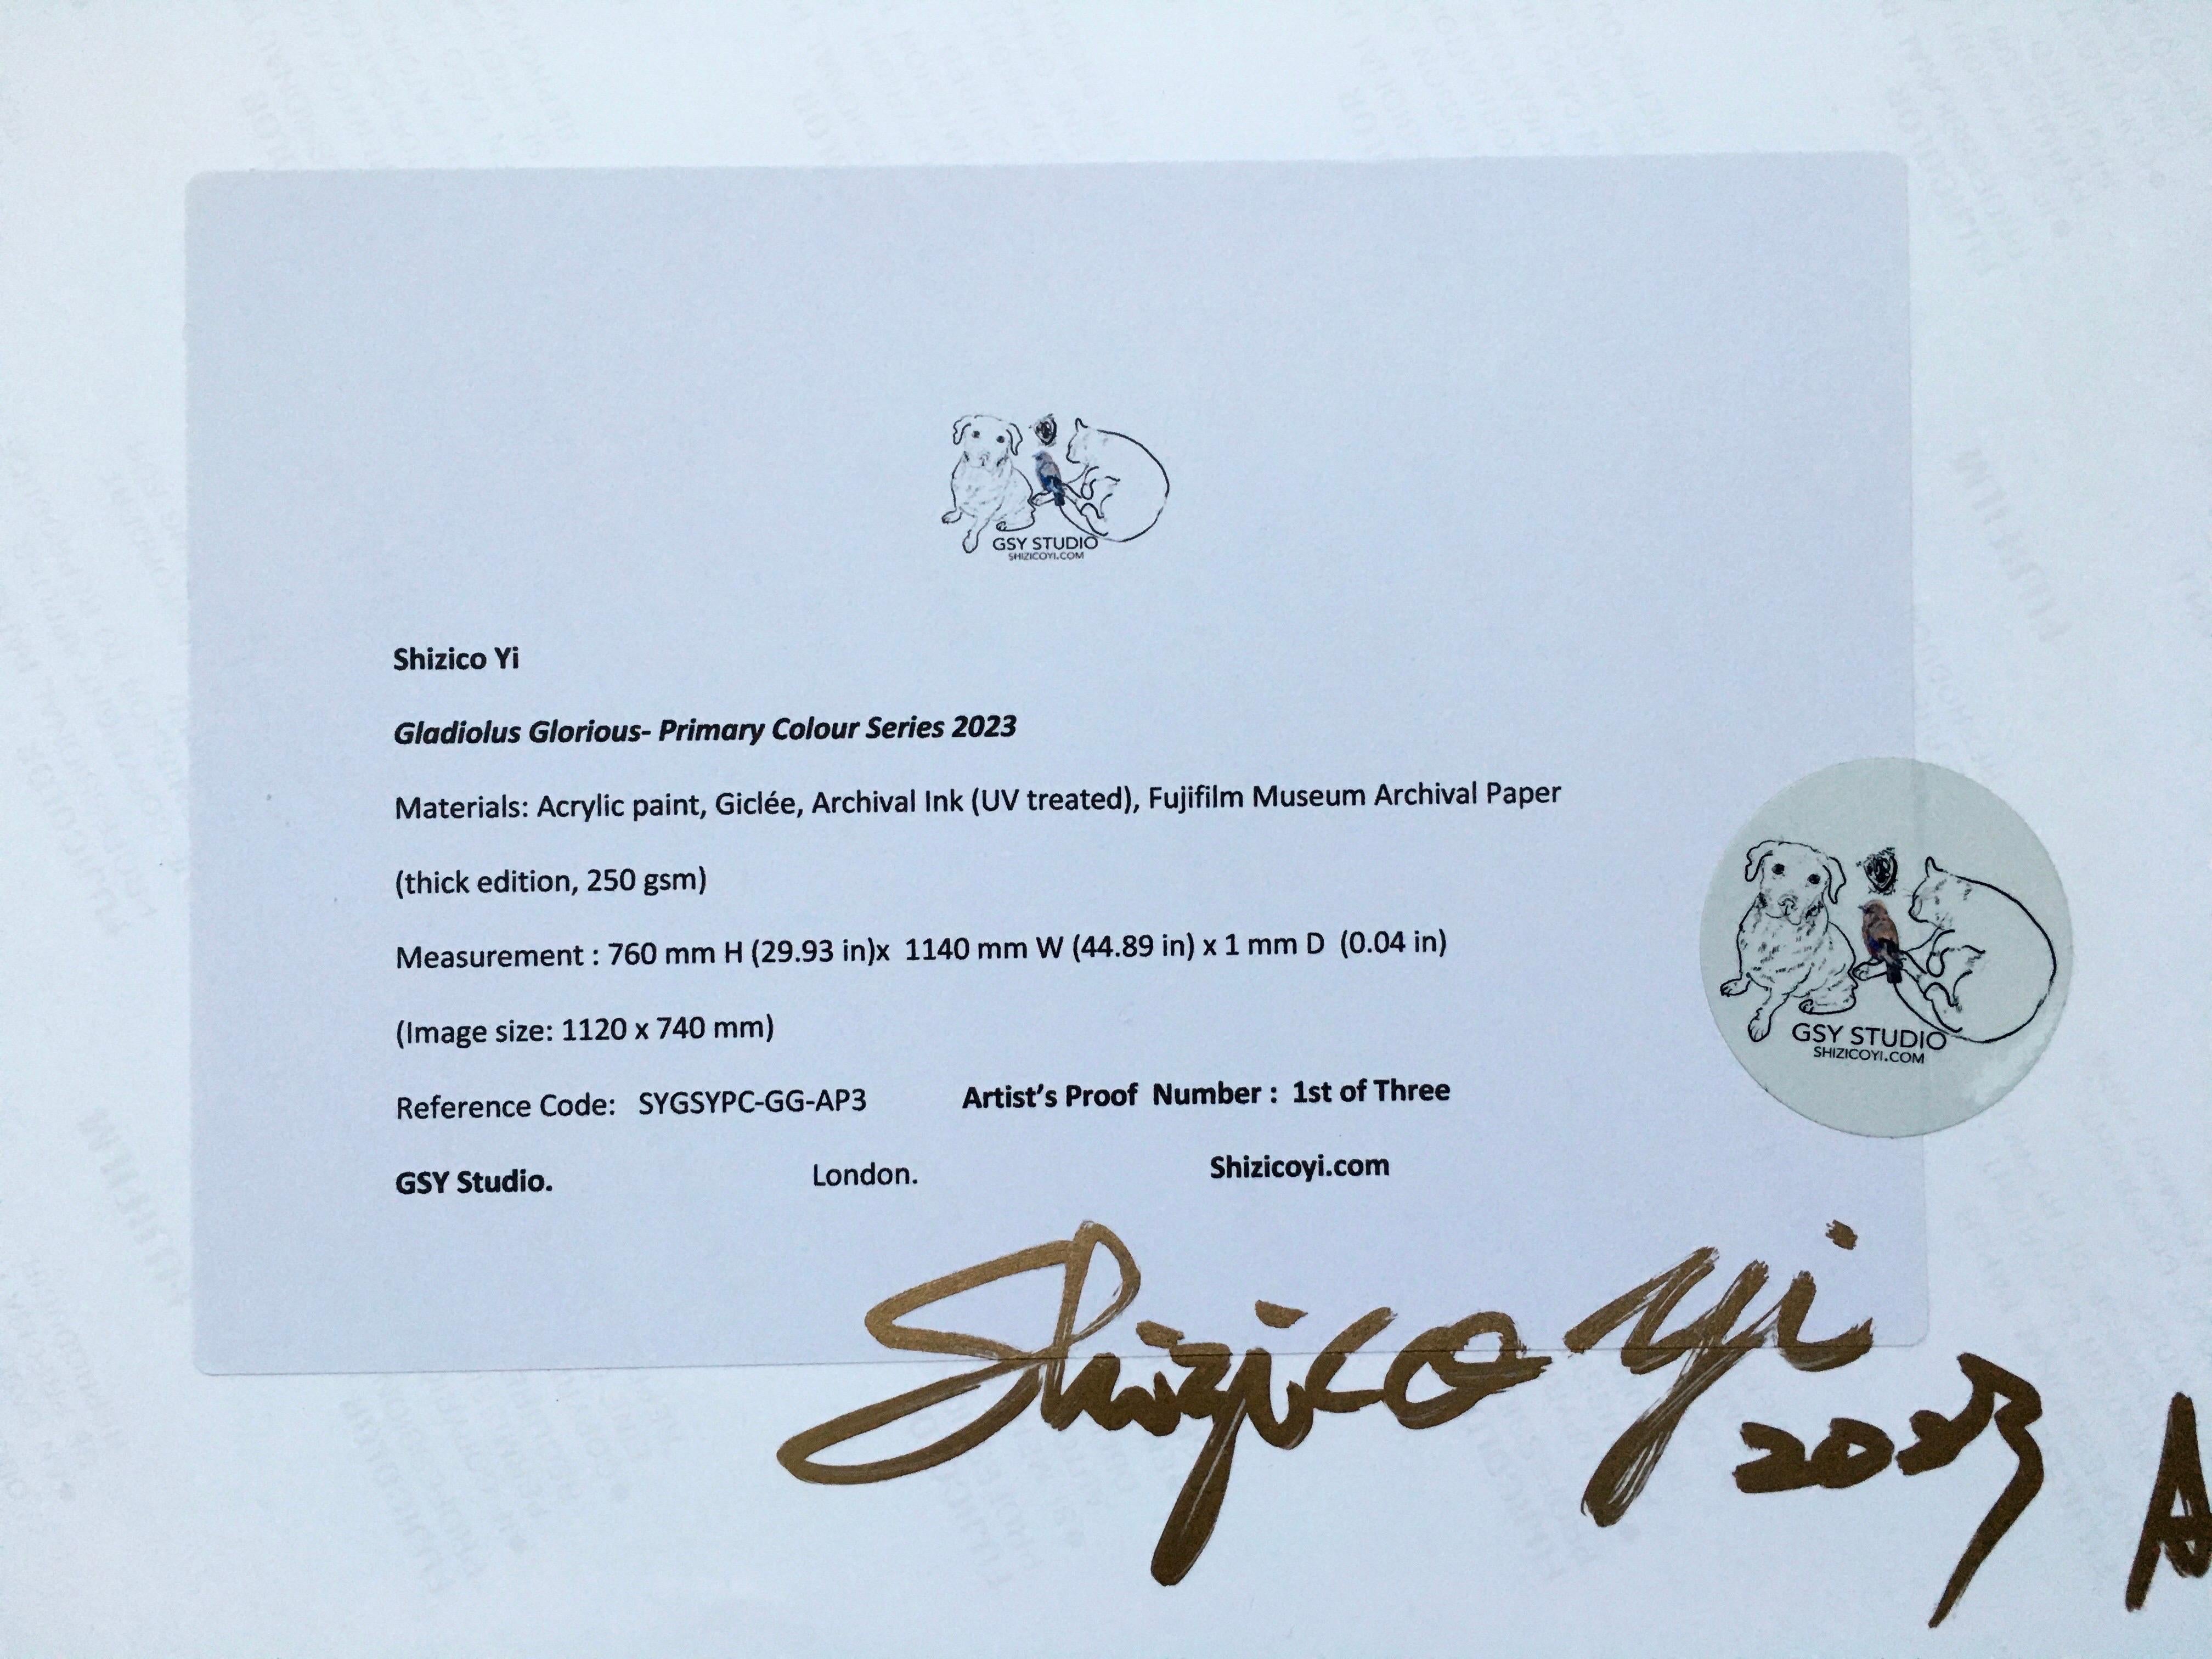 GSY STUDIO
SHIZICOYI.COM
Shizico Yi
Gladiolus Glorious- Primary Colour Series 2023
Materials: Acrylic paint, Giclée, Archival Ink (UV treated), Fujifilm Museum Archival Paper
(thick edition, 250 gsm)
Measurement : 760 mm H (29.93 in)x 1140 mm W (44.89 in) x 1 mm D (0.04 in)
(Image size: 1120 x 740 mm)
Reference Code: SYGSYPC-GG-AP3 Artist's Proof Number : 1st of Three
GSY Studio. London. Shizicoyi.com
GSY STUDIO
SHIZICOYI.COM
Shizico Yi
2023 A